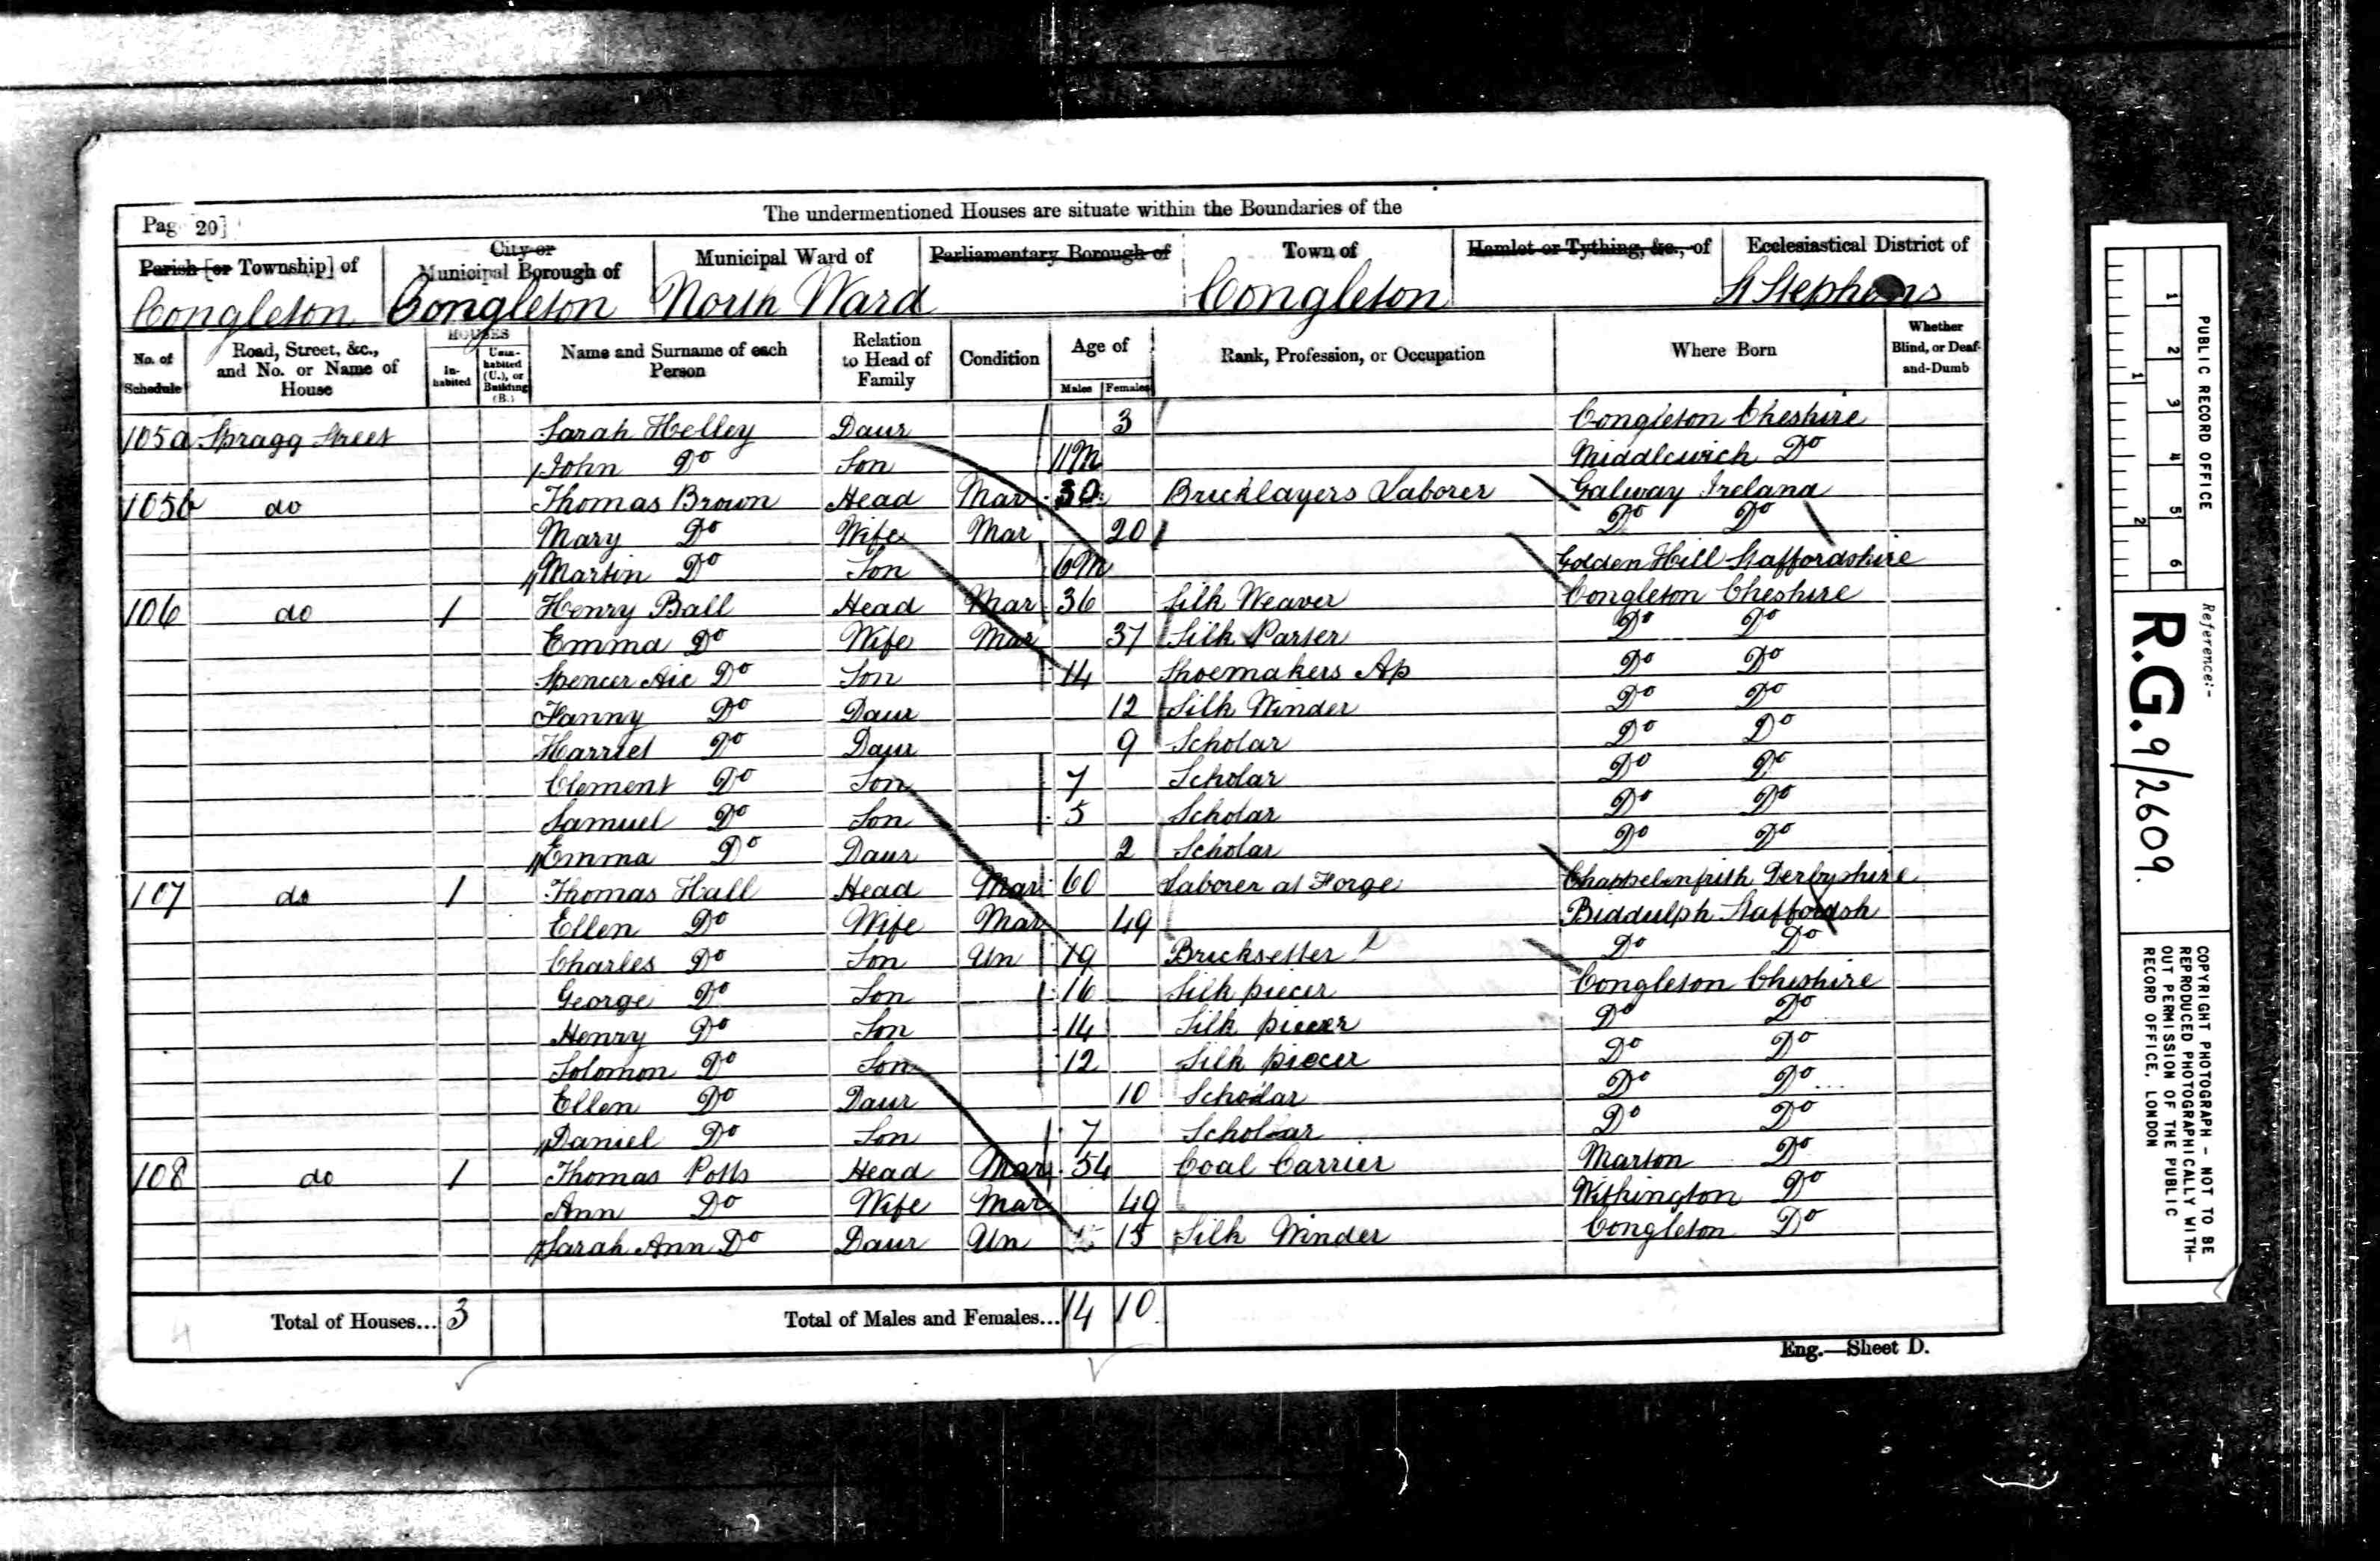 Pag 20]
The undermentioned Houses are situate within the Boundaries of the
Parish [or Township] of
City or
Municipal Borough of
Municipal Ward of
Parliamentary Borough of
Town of
Hamlet or Tything, &c., of
Ecclesiastical District of
Congleton Congleton North Ward Congleton St Stephens
No. of Schedule
Road, Street, &c., and No. or Name of House
HOUSES
In-habited
Unin-habited (U.), or Building (B.)
Name and Surname of each Person
Relation to Head of Family
Condition
Age of
Males Females
Rank, Profession, or Occupation
Where Born
Whether Blind, or Deaf-and-Dumb
105a Spragg Street Sarah Helley Daur 3 Congleton Cheshire
John Do Son 11M Middlewich Do
105b do Thomas Brown Head Mar 30 Bricklayers Laborer Galway Ireland
Mary Do Wife Mar 20 Do Do
Martin Do Son 6M Golden Hill Staffordshire
106 do 1 Henry Ball Head Mar 36 Silk Weaver Congleton Cheshire
Emma Do Wife Mar 37 Silk Parter Do Do
Spencer Do Son 14 Shoemakers Ap Do Do
Fanny Do Daur 12 Silk Winder Do Do
Harriet Do Daur 9 Scholar Do Do
Clement Do Son 7 Scholar Do Do
Samuel Do Son 5 Scholar Do Do
Emma Do Daur 2 Scholar Do Do
107 do 1 Thomas Hall Head Mar 60 Laborer at Forge Chappelenfrith Derbyshire
Ellen Do Wife Mar 49 Biddulph Staffordsh
Charles Do Son Un 19 Bricksetter Do Do
George Do Son 16 Silk piecer Congleton Cheshire
Henry Do Son 14 Silk piecer Do Do
Solomon Do Son 12 Silk piecer Do Do
Ellen Do Daur 10 Scholar Do Do
Daniel Do Son 7 Scholar Do Do
108 do 1 Thomas Potts Head Mar 54 Coal Carrier Marton Do
Ann Do Wife Mar 49 Withington Do
Sarah Ann Do Daur Un 15 Silk Winder Congleton Do
Total of Houses... 3 Total of Males and Females... 14 10
Eng.—Sheet D.
1 2 3 4 5 6
1 2
PUBLIC RECORD OFFICE
Reference:-
R.G. 9/2609.
COPYRIGHT PHOTOGRAPH - NOT TO BE
REPRODUCED PHOTOGRAPHICALLY WITH-
OUT PERMISSION OF THE PUBLIC
RECORD OFFICE, LONDON